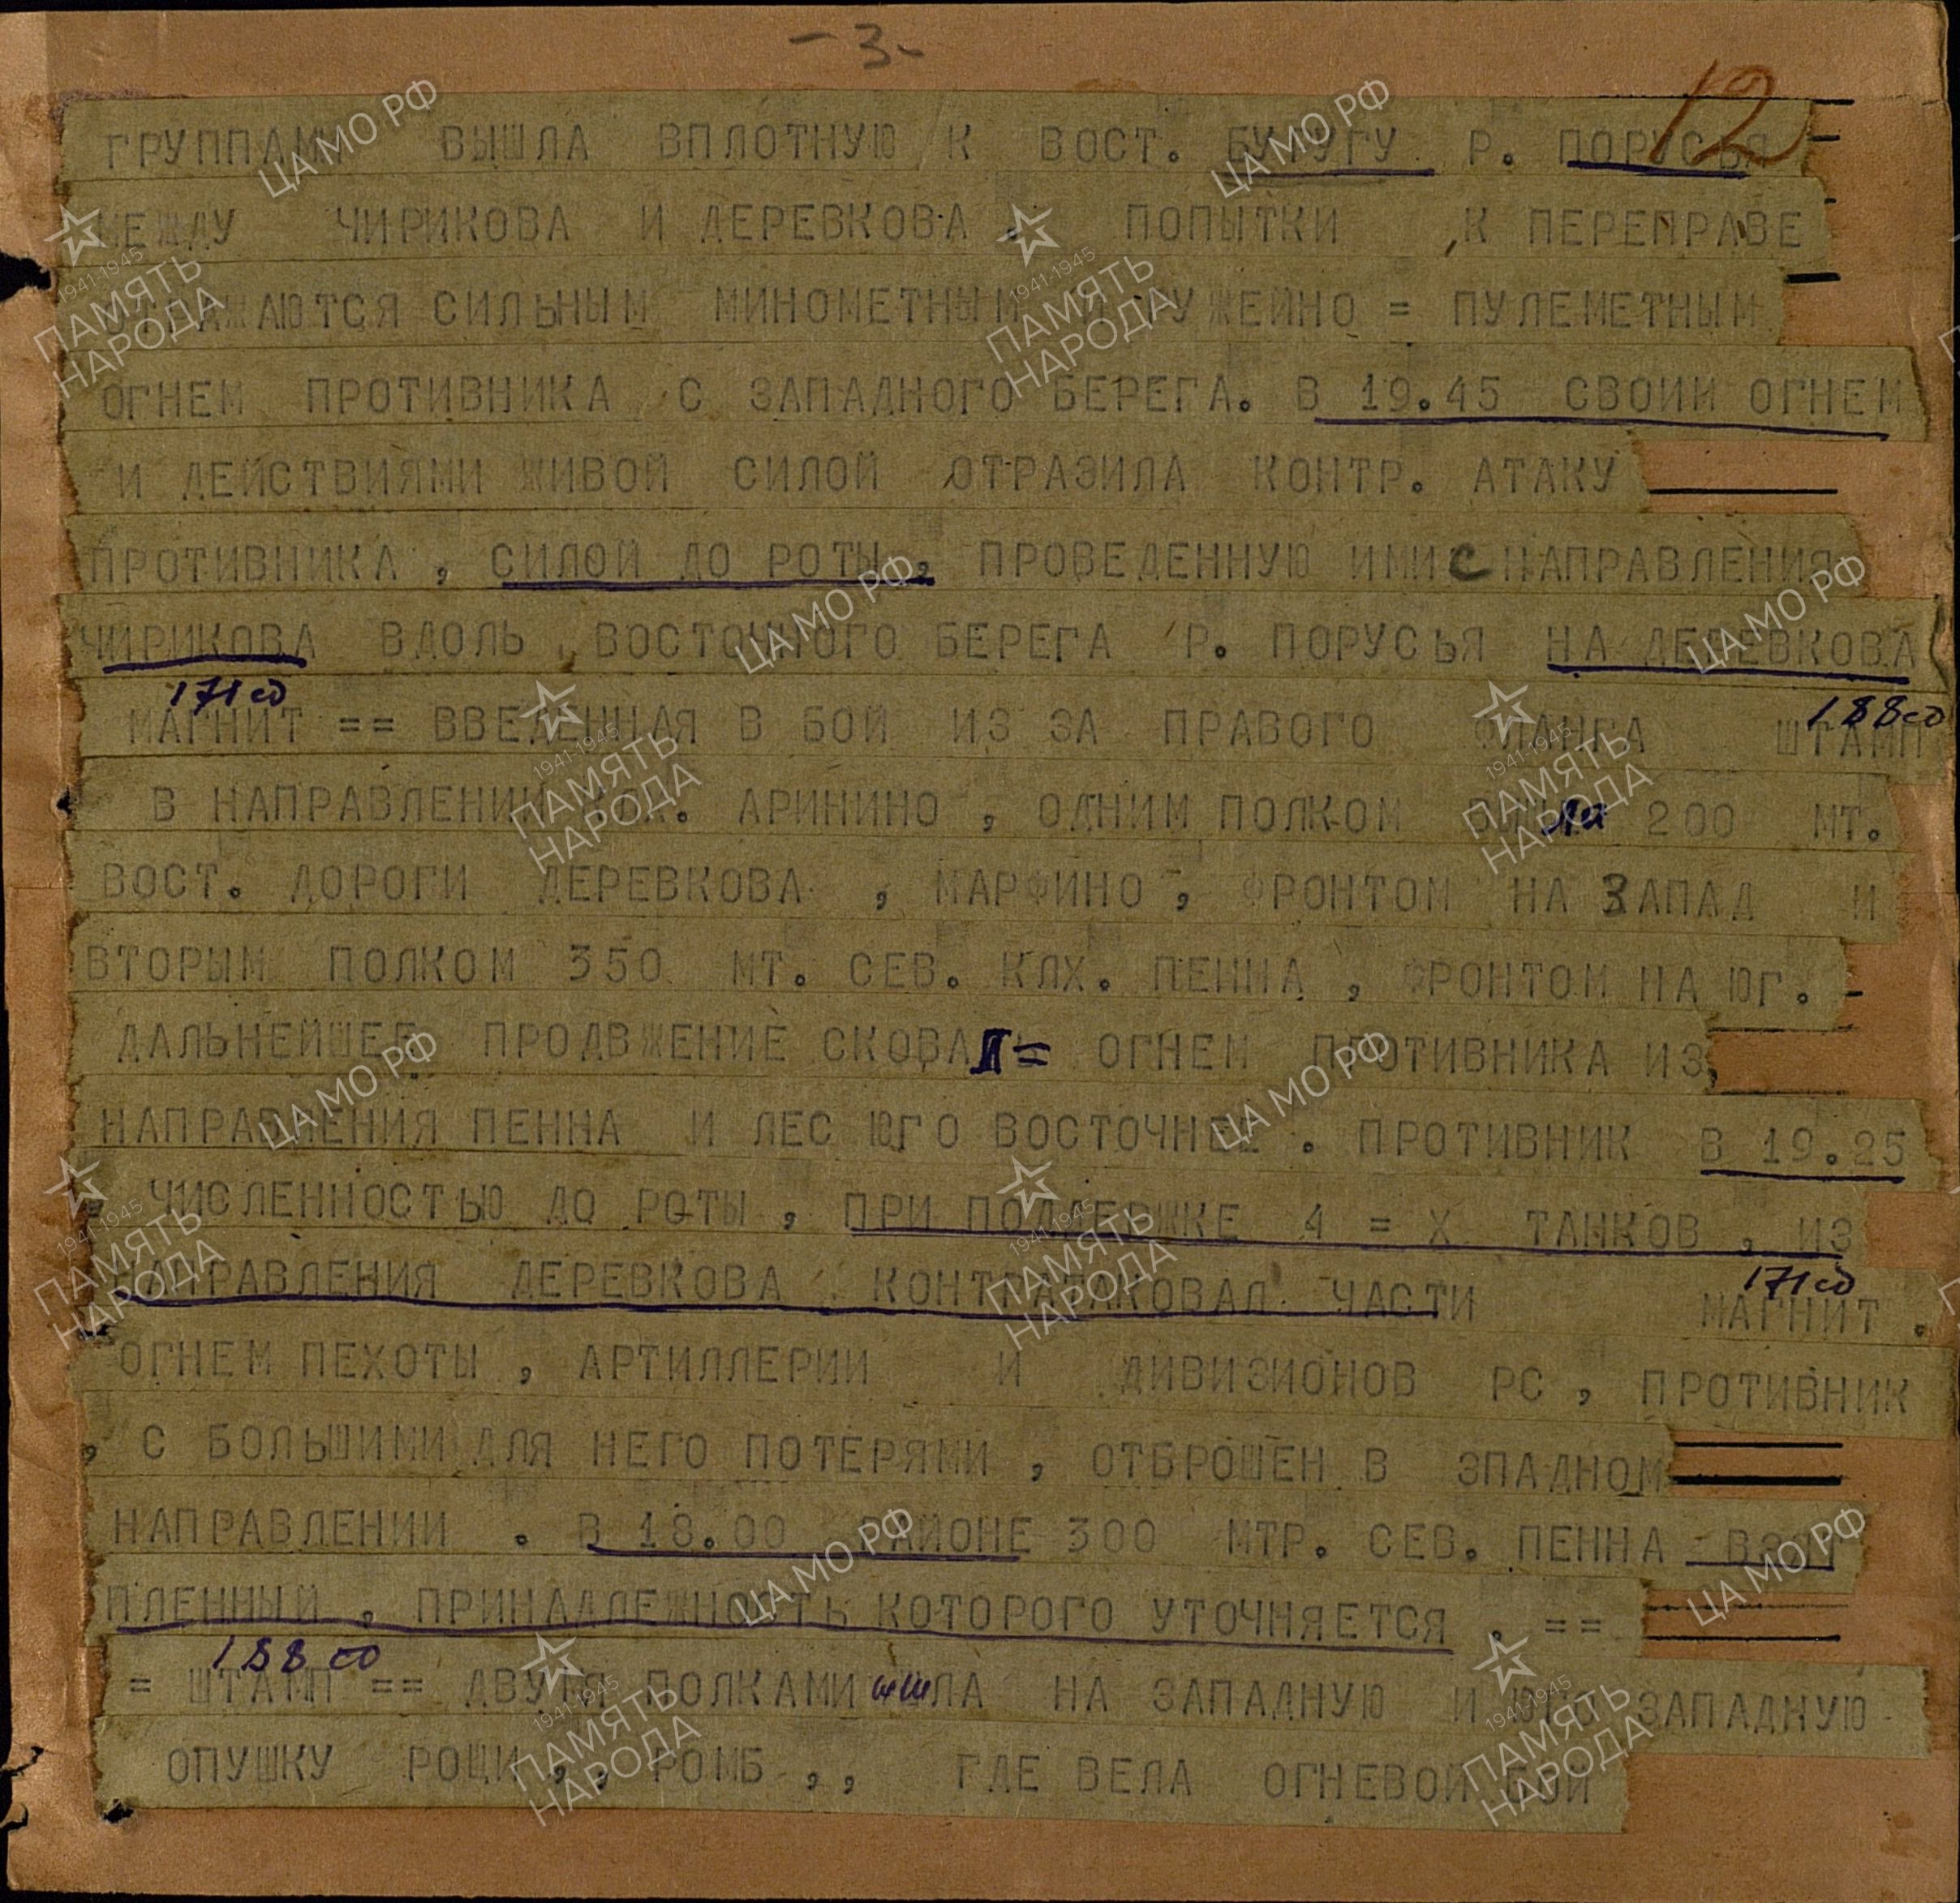 - 3 -
12
ГРУППАМИ ВЫШЛА ВПЛОТНУЮ К ВОСТ. БУРУГУ Р. ПОРУСЬЯ
МЕЖДУ ЧИРИКОВА И ДЕРЕВКОВА . ПОПЫТКИ К ПЕРЕПРАВЕ
ОТРАЖАЮТСЯ СИЛЬНЫМ МИНОМЕТНЫМ И РУЖЕЙНО = ПУЛЕМЕТНЫМ
ОГНЕМ ПРОТИВНИКА С ЗАПАДНОГО БЕРЕГА. В 19.45 СВОИИ ОГНЕМ
И ДЕЙСТВИЯМИ ЖИВОЙ СИЛОЙ ОТРАЗИЛА КОНТР. АТАКУ
ПРОТИВНИКА , СИЛОЙ ДО РОТЫ , ПРОВЕДЕННУЮ ИМИ С НАПРАВЛЕНИЯ
ЧИРИКОВА ВДОЛЬ ВОСТОЧНОГО БЕРЕГА Р. ПОРУСЬЯ НА ДЕРЕВКОВА
171 сд 188 сд
МАГНИТ == ВВЕДЕННАЯ В БОЙ ИЗ ЗА ПРАВОГО ФЛАНГА ШТАМП
В НАПРАВЛЕНИИ АРИНИНО , ОДНИМ ПОЛКОМ 200 МТ.
ВОСТ. ДОРОГИ ДЕРЕВКОВА , МАРФИНО , ФРОНТОМ НА ЗАПАД И
ВТОРЫМ ПОЛКОМ 350 МТ. СЕВ. КЛХ. ПЕННА , ФРОНТОМ НА ЮГ.
ДАЛЬНЕЙШЕЕ ПРОДВЖЕНИЕ СКОВАЛ= ОГНЕМ ПРОТИВНИКА ИЗ
НАПРАВЛЕНИЯ ПЕННА И ЛЕС ЮГО ВОСТОЧНЕЕ . ПРОТИВНИК В 19.25
= ЧИСЛЕННОСТЬЮ ДО РОТЫ , ПРИ ПОДДЕРЖКЕ 4 = Х ТАНКОВ , ИЗ
НАПРАВЛЕНИЯ ДЕРЕВКОВА КОНТРАТАКОВАЛ ЧАСТИ МАГНИТ .
171 сд
ОГНЕМ ПЕХОТЫ , АРТИЛЛЕРИИ И ДИВИЗИОНОВ РС , ПРОТИВНИК
, С БОЛЬШИМИ ДЛЯ НЕГО ПОТЕРЯМИ , ОТБРОШЕН В ЗПАДНОМ
НАПРАВЛЕНИИ . В 18.00 РАЙОНЕ 300 МТР. СЕВ. ПЕННА ВЗЯТ
ПЛЕННЫЙ , ПРИНАДЛЕЖНОСТЬ КОТОРОГО УТОЧНЯЕТСЯ . ==
188 сд
= ШТАМП == ДВУМЯ ПОЛКАМИ ЛА НА ЗАПАДНУЮ И ЮГО ЗАПАДНУЮ
ОПУШКУ РОЩИ , , РОМБ , , ГДЕ ВЕЛА ОГНЕВОЙ БОЙ
ЦА МО РФ
1941-1945
ПАМЯТЬ
НАРОДА